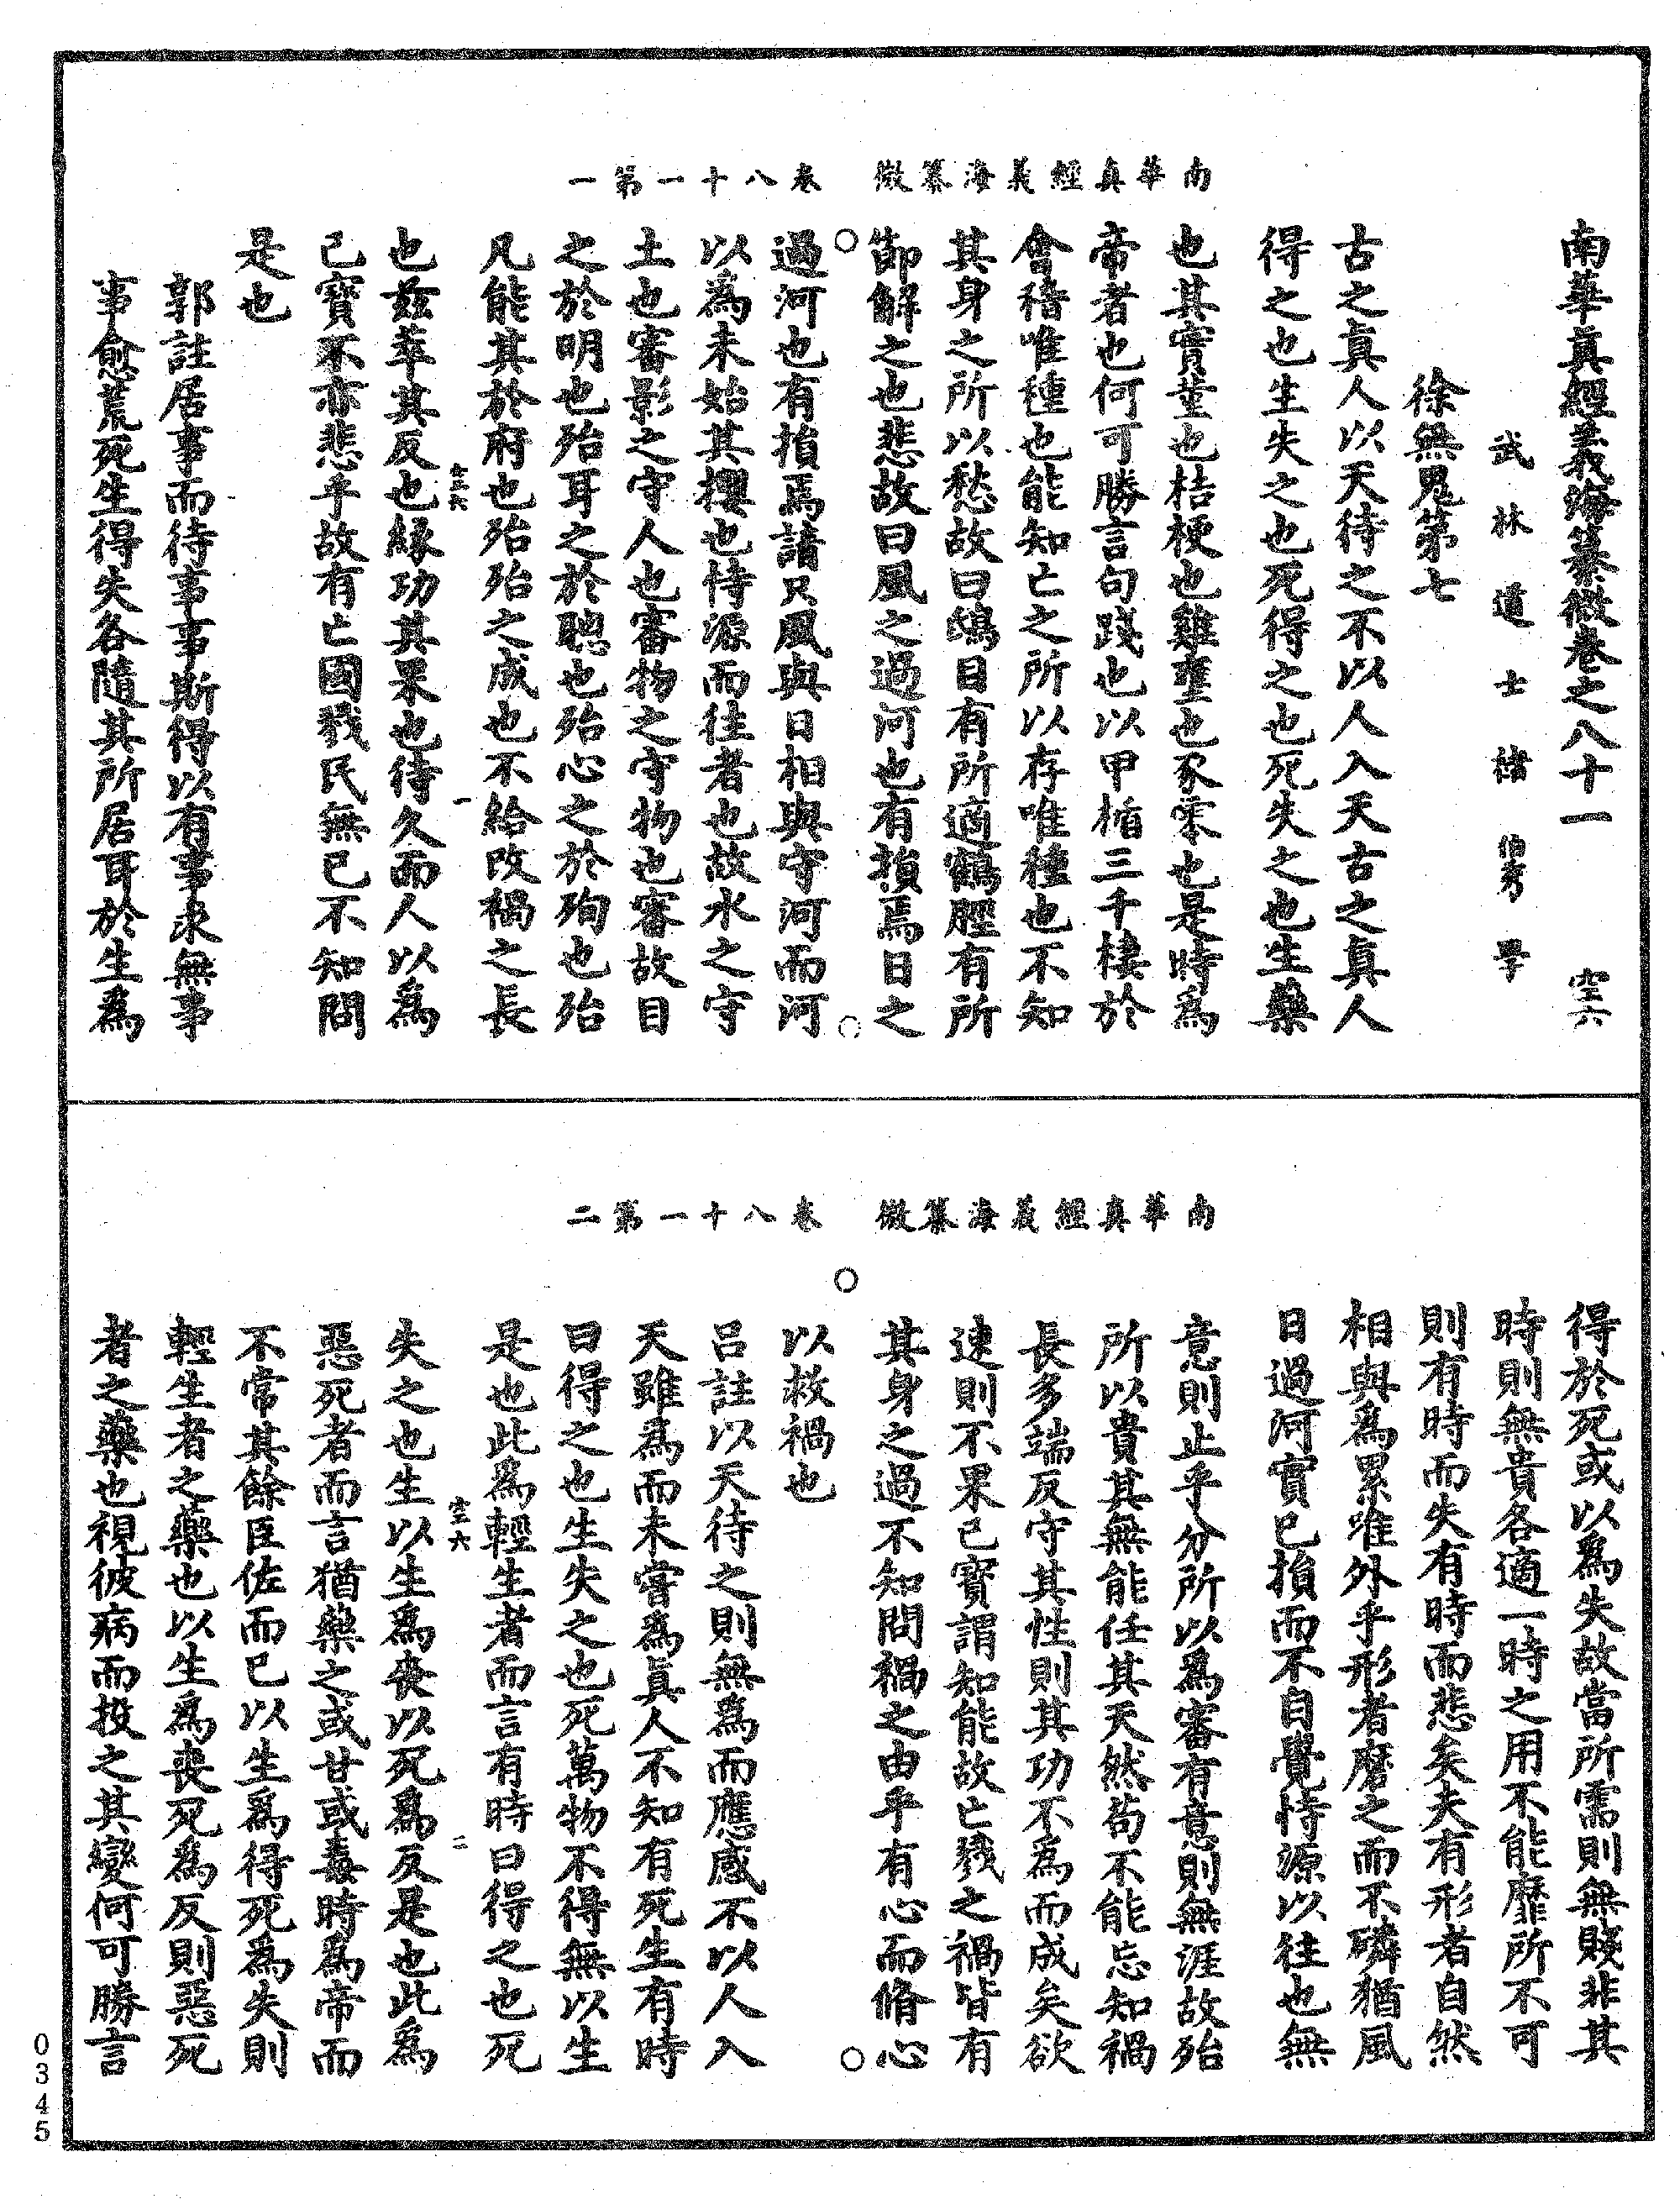 南華真經義海纂微　卷八十一第一
南華真經義海纂微卷之八十一　空六
武林道士褚伯秀學
徐無鬼第七
古之真人以天待之不以人入天古之真人
得之也生失之也死得之也死失之也生藥
也其實堇也桔梗也雞壅也豕零也是時為
帝者也何可勝言句踐也以甲楯三千棲於
會稽唯種也能知亡之所以存唯種也不知
其身之所以愁故曰鴟目有所適鶴脛有所
節解之也悲故曰風之過河也有損焉日之
過河也有損焉請只風與日相與守河而河
以為未始其攖也恃源而往者也故水之守
土也審影之守人也審物之守物也審故目
之於明也殆耳之於聰也殆心之於殉也殆
凡能其於府也殆殆之成也不給改禍之長
空六　一
也茲萃其反也緣功其果也待久而人以為
己寶不亦悲乎故有亡國戮民無已不知問
是也
郭註居事而待事事斯得以有事求無事
事愈荒死生得失各隨其所居耳於生為
南華真經義海纂微　卷八十一第二
得於死或以為失故當所需則無賤非其
時則無貴各適一時之用不能靡所不可
則有時而失有時而悲矣夫有形者自然
相與為累唯外乎形者磨之而不磷猶風
日過河實已損而不自覺恃源以往也無
意則止乎分所以為審有意則無涯故殆
所以貴其無能任其天然苟不能忘知禍
長多端反守其性則其功不為而成矣欲
速則不果己寶謂知能故亡戮之禍皆有
其身之過不知問禍之由乎有心而脩心
以救禍也
呂註以天待之則無為而應感不以人入
天雖為而未嘗為真人不知有死生有時
曰得之也生失之也死萬物不得無以生
是也此為輕生者而言有時曰得之也死
空六　二
失之也生以生為喪以死為反是也此為
惡死者而言猶藥之或甘或毒時為帝而
不常其餘臣佐而已以生為得死為失則
輕生者之藥也以生為喪死為反則惡死
者之藥也視彼病而投之其變何可勝言
0345